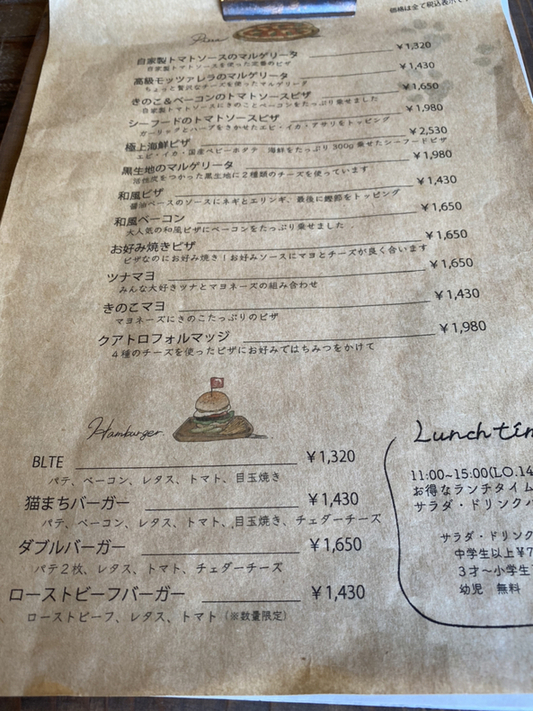 価格は全て税込表示で
Pizza
自家製トマトソースのマルゲリータ ¥1,320
自家製トマトソースを使った定番のピザ
高級モッツァレラのマルゲリータ ¥1,430
ちょっと贅沢なチーズを使ったマルゲリータ
きのこ&ベーコンのトマトソースピザ ¥1,650
自家製トマトソースにきのことベーコンをたっぷり乗せました
シーフードのトマトソースピザ ¥1,980
ガーリックとハーブをきかせたエビ・イカ・アサリをトッピング
極上海鮮ピザ ¥2,530
エビ・イカ・国産ベビーホタテ 海鮮をたっぷり300g乗せたシーフードピザ
黒生地のマルゲリータ ¥1,980
活性炭をつかった黒生地に2種類のチーズを使っています
和風ピザ ¥1,430
醤油ベースのソースにネギとエリンギ、最後に鰹節をトッピング
和風ベーコン ¥1,650
大人気の和風ピザにベーコンをたっぷり乗せました
お好み焼きピザ ¥1,650
ピザなのにお好み焼き!お好みソースにマヨとチーズが良く合います
ツナマヨ ¥1,650
みんな大好きツナとマヨネーズの組み合わせ
きのこマヨ ¥1,430
マヨネーズにきのこたっぷりのピザ
クアトロフォルマッジ ¥1,980
4種のチーズを使ったピザにお好みではちみつをかけて
Hamburger
BLTE ¥1,320
パテ、ベーコン、レタス、トマト、目玉焼き
猫まちバーガー ¥1,430
パテ、ベーコン、レタス、トマト、目玉焼き、チェダーチーズ
ダブルバーガー ¥1,650
パテ2枚、レタス、トマト、チェダーチーズ
ローストビーフバーガー ¥1,430
ローストビーフ、レタス、トマト(※数量限定)
Lunch tim
11:00~15:00(LO.14
お得なランチタイム
サラダ・ドリンクバ
サラダ・ドリンク
中学生以上¥7
3才~小学生
幼児 無料